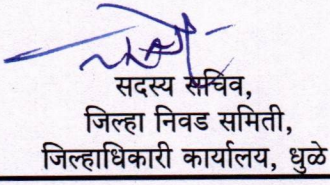 सदस्य सचिव,
जिल्हा निवड समिती,
जिल्हाधिकारी कार्यालय, धुळे